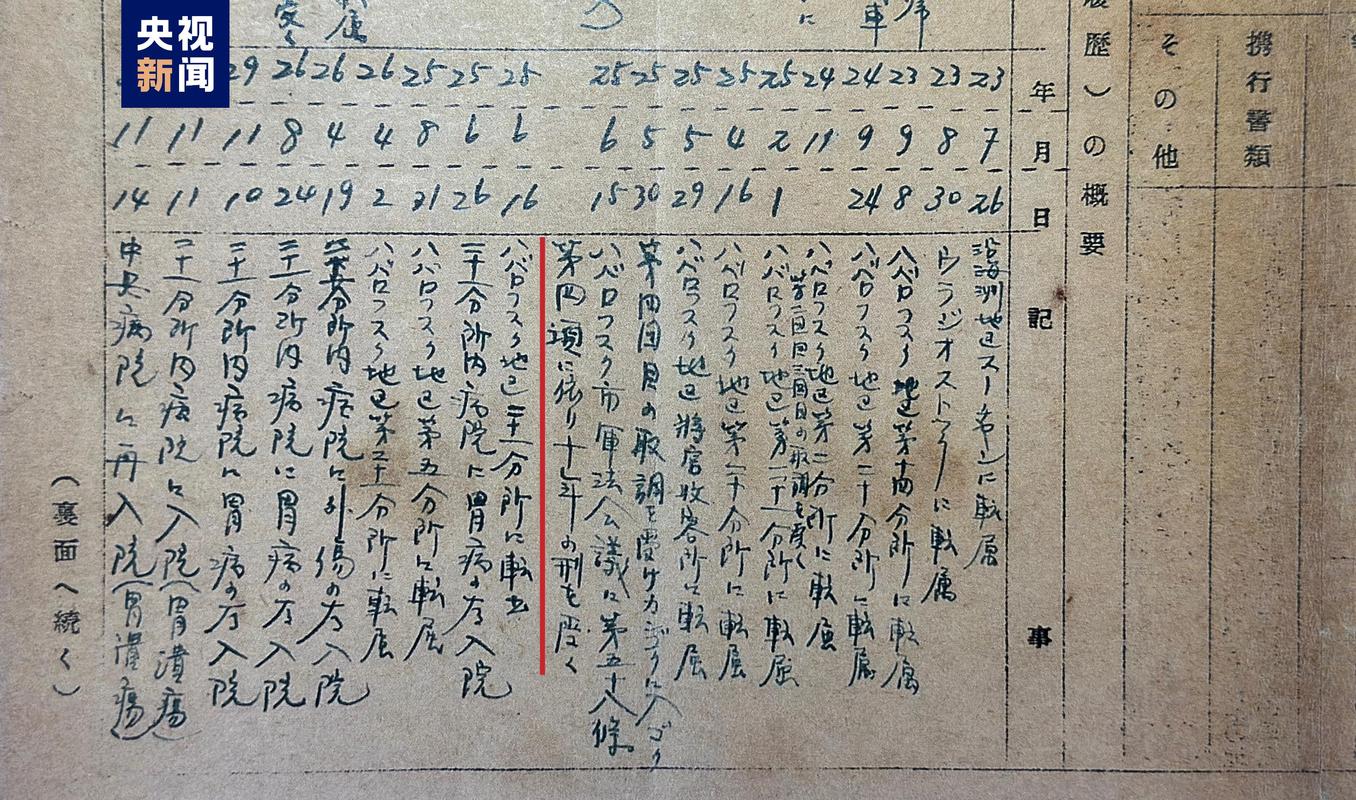 央视
新闻
携行書類
その他
歴)の概要
年
月
日
記
事
23 7 26 沿海州地区スーチャンに転属
23 8 30 ウラジオストックに転属
23 9 8 ハバロフスク地区第十四分所に転属
24 9 24 ハバロフスク地区第二十分所に転属
24 11 ハバロフスク地区第二分所に転属
第二回目三回目の取調を受く
25 2 1 ハバロフスク地区第二十一分所に転属
25 4 16 ハバロフスク地区第二十分所に転属
25 5 29 ハバロフスク地区将官收容所に転属
25 5 30 第四回目の取調を受け カンゴクに入ゴク
25 6 15 ハバロフスク市軍法会議に第五十八條
第四項に依り十七年の刑を受く
25 6 16 ハバロフスク地区二十一分所に転出
25 6 26 二十一分所内病院に胃病の為入院
25 8 21 ハバロフスク地区第五分所に転属
26 4 2 ハバロフスク地区第二十一分所に転属
26 4 19 分所内病院に外傷の為入院
26 8 24 二十一分所内病院に胃病の為入院
29 11 10 二十一分所内病院に胃病の為入院
11 11 二十一分所内病院に入院(胃潰瘍)
11 14 中央病院に再入院(胃潰瘍)
(裏面へ続く)